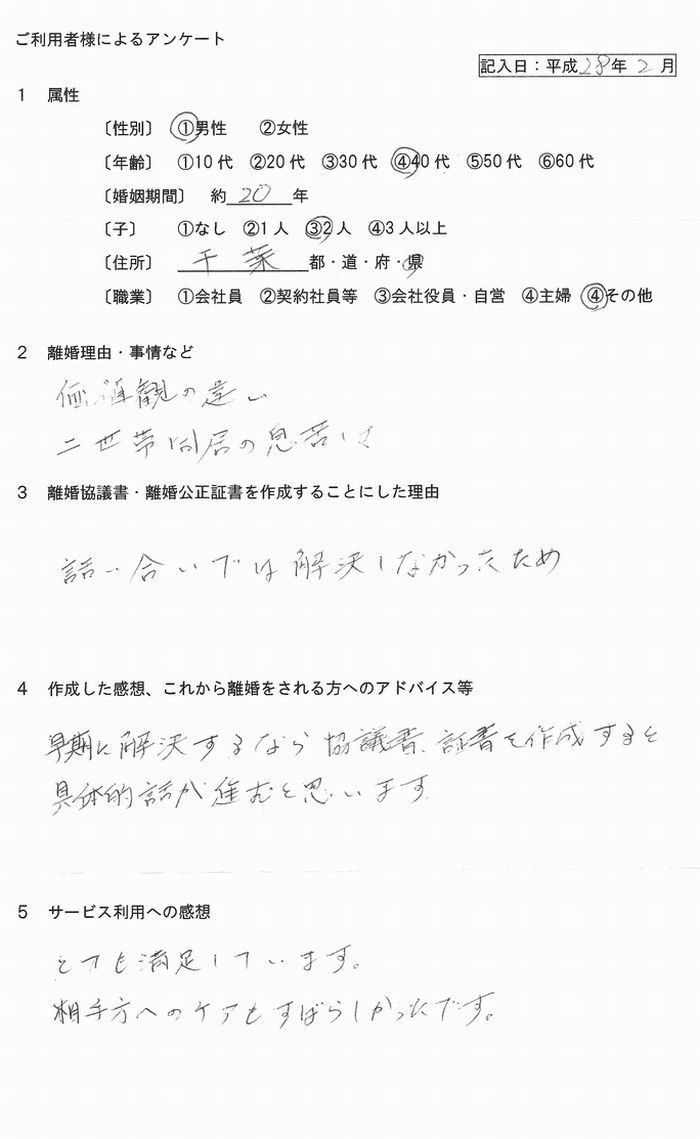 ご利用者様によるアンケート
記入日：平成28年2月
1 属性
〔性別〕 ①男性 ②女性
〔年齢〕 ①10代 ②20代 ③30代 ④40代 ⑤50代 ⑥60代
〔婚姻期間〕 約20年
〔子〕 ①なし ②1人 ③2人 ④3人以上
〔住所〕 千葉 都・道・府・県
〔職業〕 ①会社員 ②契約社員等 ③会社役員・自営 ④主婦 ④その他
2 離婚理由・事情など
価値観の違い
二世帯同居の息苦しさ
3 離婚協議書・離婚公正証書を作成することにした理由
話い合いでは解決しなかったため
4 作成した感想、これから離婚をされる方へのアドバイス等
早期に解決するなら協議書、証書を作成すると
具体的話が進むと思います
5 サービス利用への感想
とても満足しています。
相手方へのケアもすばらしかったです。